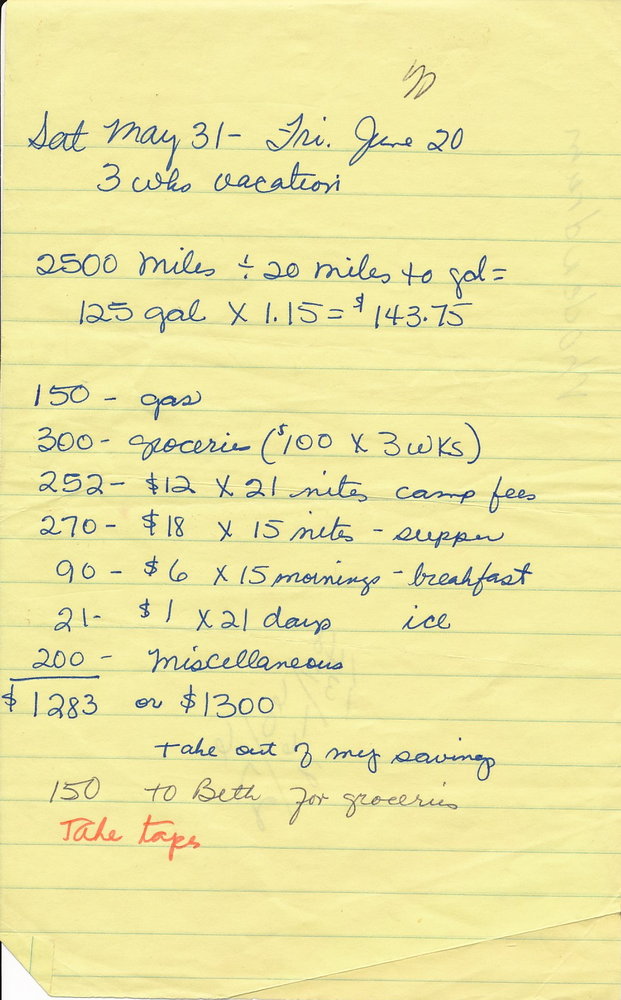 Sat May 31 - Fri. June 20
3 wks vacation
2500 miles ÷ 20 miles to gal =
125 gal X 1.15 = $143.75
150 - gas
300 - groceries ($100 X 3 wks)
252 - $12 X 21 nites camp fees
270 - $18 X 15 nites - supper
90 - $6 X 15 mornings - breakfast
21 - $1 X 21 days ice
200 - Miscellaneous
$1283 or $1300
take out of my savings
150 to Beth for groceries
Take tapes